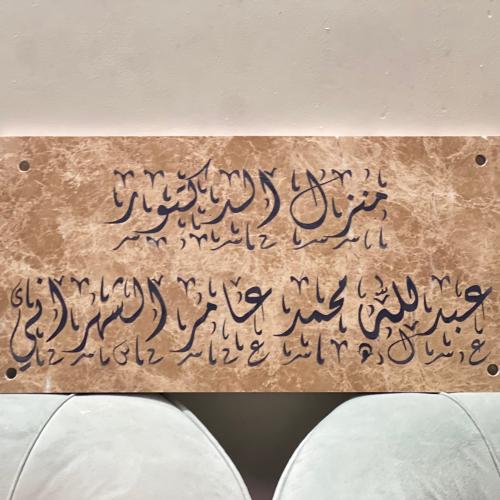 منزل الدكتور
عبدالله محمد عامر الشهراني